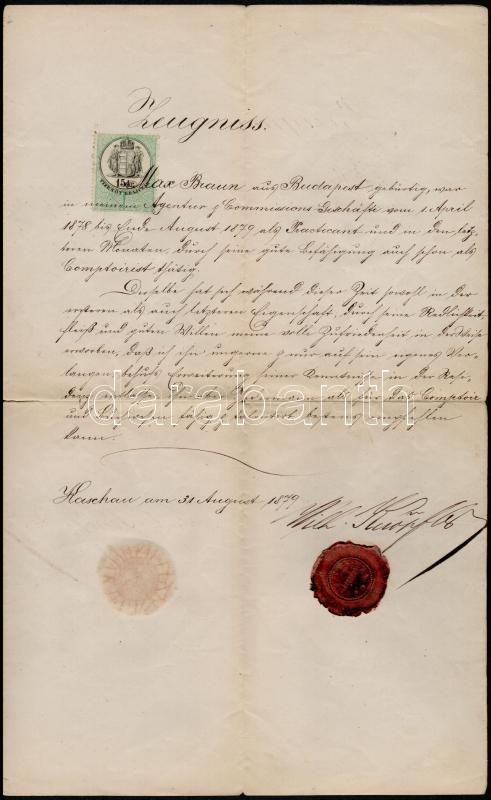 Zeugniss.
15 kr
Max Braun aus Budapest gebürtig, war
in meinem Agentur & Commissions Geschäfte vom 1. April
1878 bis Ende August 1879 als Practicant und in den letz-
teren Monaten, durch seine gute Befähigung auch schon als
Comptoirist thätig.
Derselbe hat sich während dieser Zeit sowohl in der
ersteren als auch letzteren Eigenschaft, durch seine Redlichkeit,
Fleiß und guten Willen meine volle Zufriedenheit in der Weise
erworben, daß ich ihn ungerne & nur auf sein eigenes Ver-
langen behufs Erweiterung seiner Kenntnisse in der Resi-
denz entlasse als für das Comptoir
und bestens empfehlen
kann.
darabanth
Kaschau am 31 August 1879
Wilh. Knöpfler